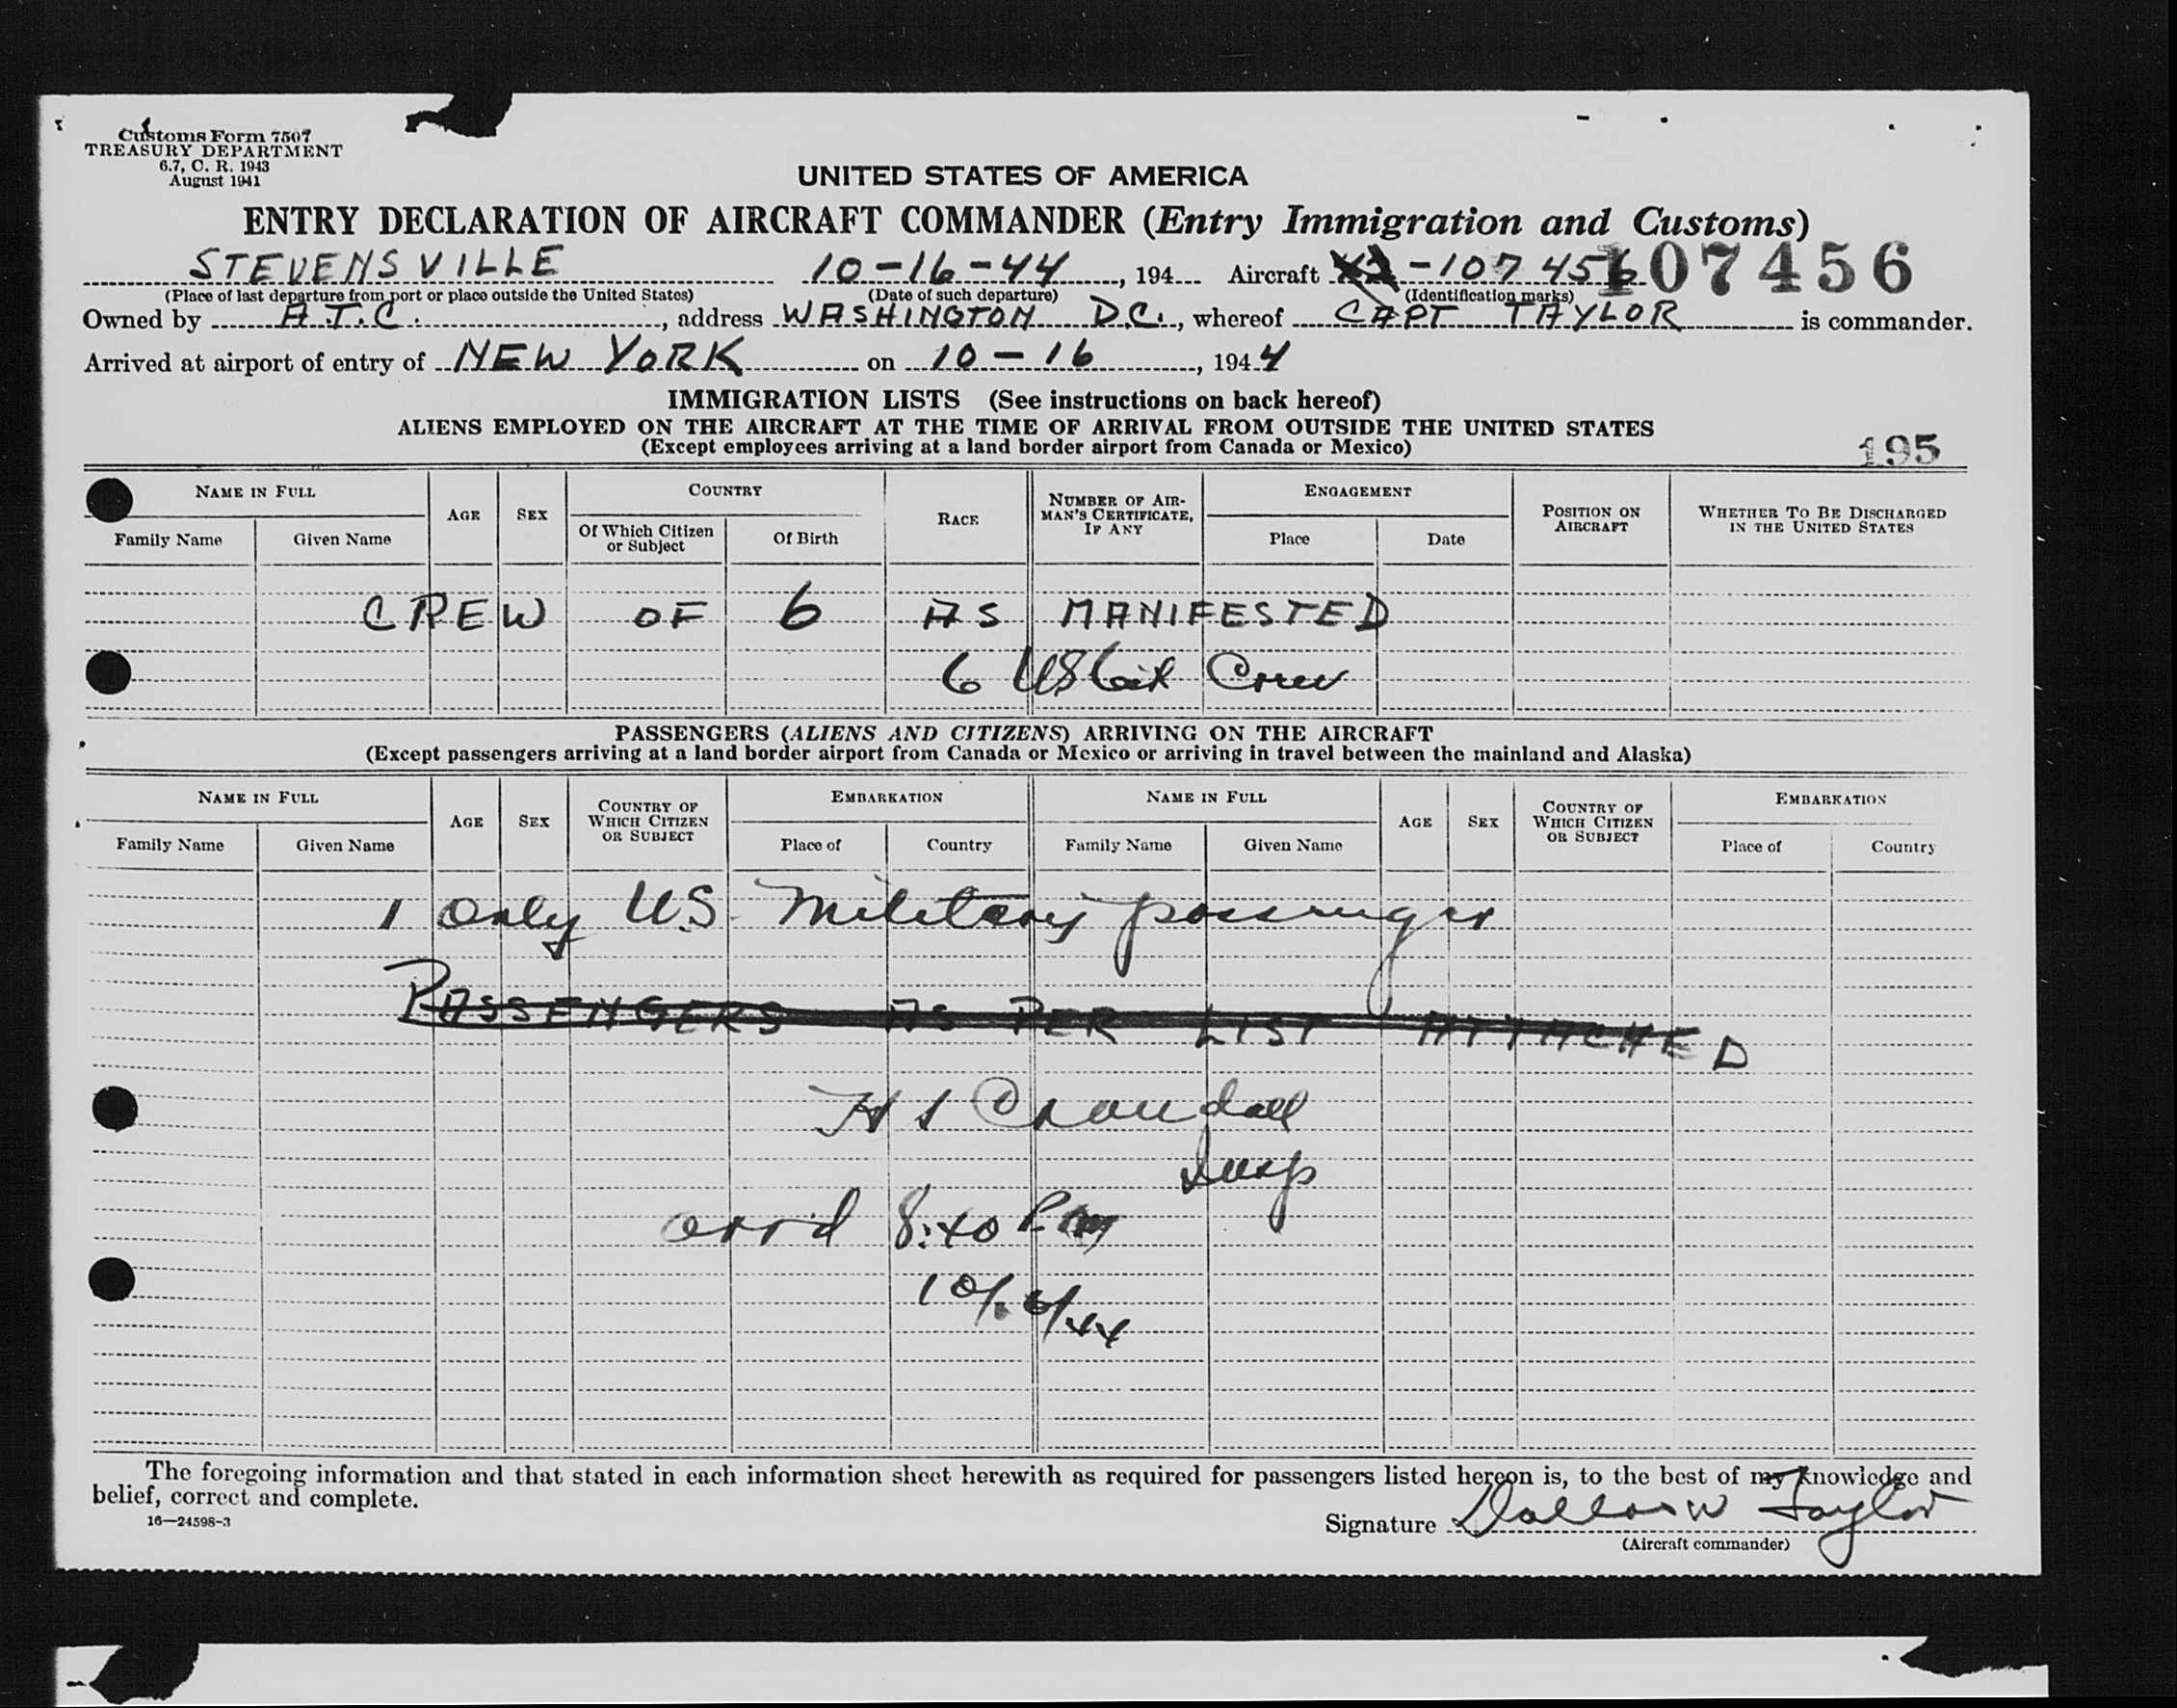 Customs Form 7507
TREASURY DEPARTMENT
6.7, C. R. 1943
August 1941
UNITED STATES OF AMERICA
ENTRY DECLARATION OF AIRCRAFT COMMANDER (Entry Immigration and Customs)
STEVENSVILLE 10-16-44, 194 Aircraft -107456 107456
(Place of last departure from port or place outside the United States) (Date of such departure) (Identification marks)
Owned by A.T.C., address WASHINGTON D.C., whereof CAPT TAYLOR is commander.
Arrived at airport of entry of NEW YORK on 10-16, 1944
IMMIGRATION LISTS (See instructions on back hereof)
ALIENS EMPLOYED ON THE AIRCRAFT AT THE TIME OF ARRIVAL FROM OUTSIDE THE UNITED STATES
(Except employees arriving at a land border airport from Canada or Mexico)
195
NAME IN FULL AGE SEX COUNTRY RACE NUMBER OF AIR-MAN'S CERTIFICATE, IF ANY ENGAGEMENT POSITION ON AIRCRAFT WHETHER TO BE DISCHARGED IN THE UNITED STATES
Family Name Given Name Of Which Citizen or Subject Of Birth Place Date
CREW OF 6 AS MANIFESTED
6 US Cit Crew
PASSENGERS (ALIENS AND CITIZENS) ARRIVING ON THE AIRCRAFT
(Except passengers arriving at a land border airport from Canada or Mexico or arriving in travel between the mainland and Alaska)
NAME IN FULL AGE SEX COUNTRY OF WHICH CITIZEN OR SUBJECT EMBARKATION NAME IN FULL AGE SEX COUNTRY OF WHICH CITIZEN OR SUBJECT EMBARKATION
Family Name Given Name Place of Country Family Name Given Name Place of Country
1 only US Military passenger
PASSENGERS AS PER LIST ATTACHED
H S Crandall
Insp
arr'd 8:40 P.m
10/16/44
The foregoing information and that stated in each information sheet herewith as required for passengers listed hereon is, to the best of my knowledge and
belief, correct and complete.
16—24598-3
Signature Dallas W Taylor
(Aircraft commander)